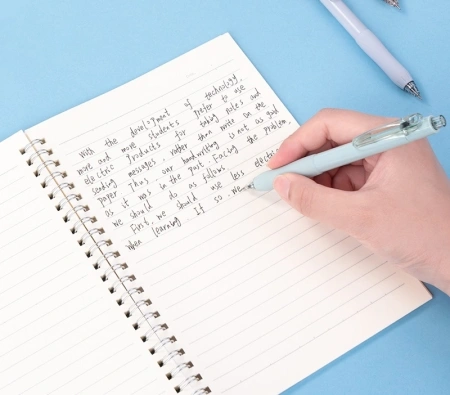 With the development of technology,
more and more students prefer to use
electric products for taking notes and
sending messages, rather than write in the
paper. Thus, our handwriting is not as good
as it was in the past. Facing the problem,
we should do as follows.
First, we should use less electric
when learning. If so, we